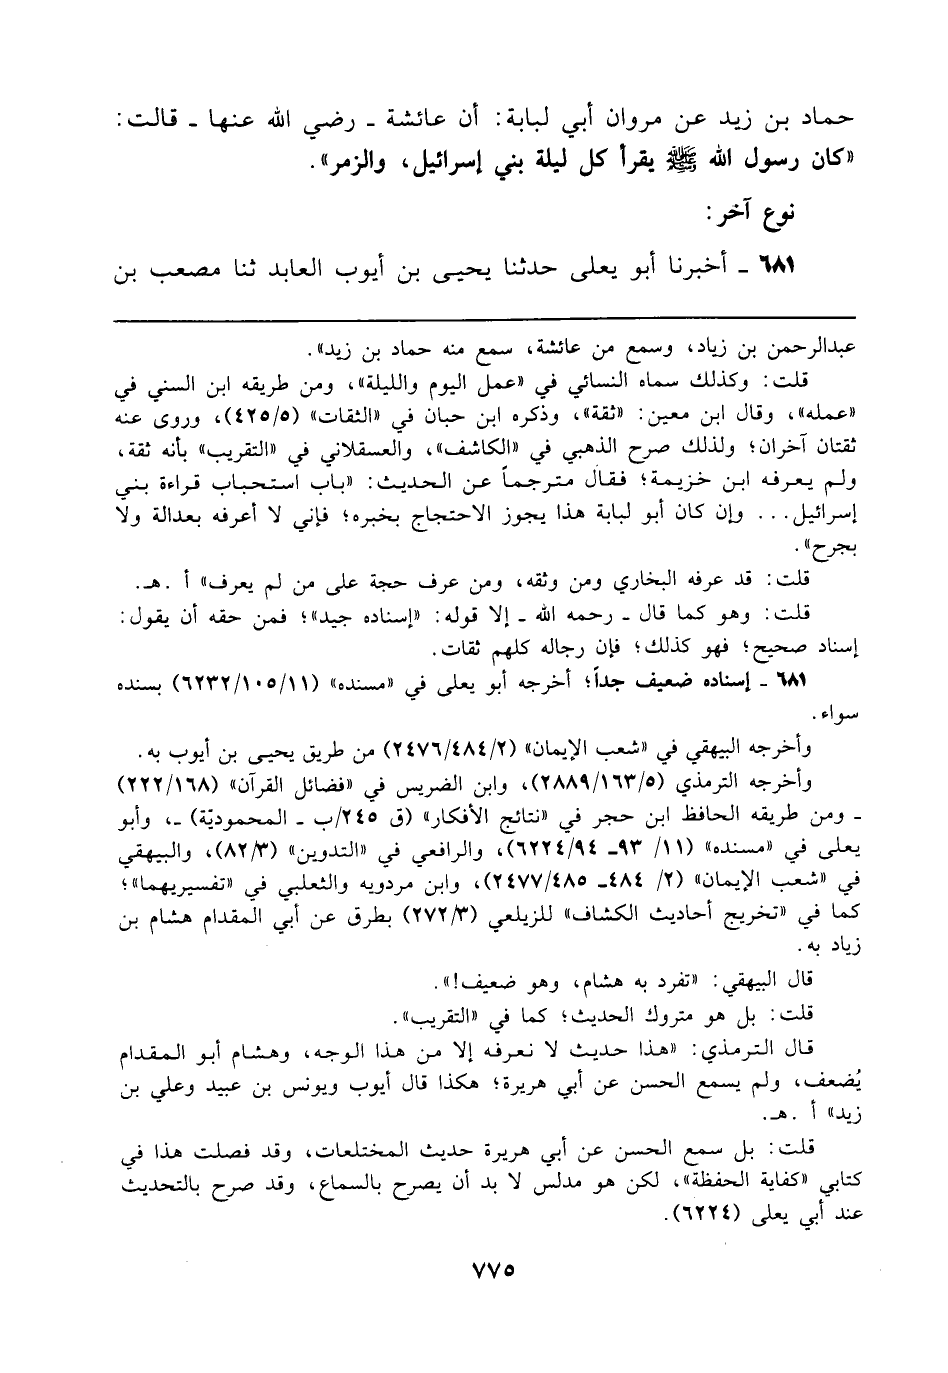 حماد بن زيد عن مروان أبي لبابة: أن عائشة ـ رضي الله عنها ـ قالت:
«كان رسول الله ﷺ يقرأ كل ليلة بني إسرائيل، والزمر».
نوع آخر:
٦٨١ ـ أخبرنا أبو يعلى حدثنا يحيى بن أيوب العابد ثنا مصعب بن
عبدالرحمن بن زياد، وسمع من عائشة، سمع منه حماد بن زيد».
قلت: وكذلك سماه النسائي في «عمل اليوم والليلة»، ومن طريقه ابن السني في
«عمله»، وقال ابن معين: «ثقة»، وذكره ابن حبان في «الثقات» (٤٢٥/٥)، وروى عنه
ثقتان آخران؛ ولذلك صرح الذهبي في «الكاشف»، والعسقلاني في «التقريب» بأنه ثقة،
ولم يعرفه ابن خزيمة؛ فقال مترجماً عن الحديث: «باب استحباب قراءة بني
إسرائيل... وإن كان أبو لبابة هذا يجوز الاحتجاج بخبره؛ فإني لا أعرفه بعدالة ولا
بجرح».
قلت: قد عرفه البخاري ومن وثقه، ومن عرف حجة على من لم يعرف» أ .هـ.
قلت: وهو كما قال ـ رحمه الله ـ إلا قوله: «إسناده جيد»؛ فمن حقه أن يقول:
إسناد صحيح؛ فهو كذلك؛ فإن رجاله كلهم ثقات.
٦٨١ ـ إسناده ضعيف جداً؛ أخرجه أبو يعلى في «مسنده» (٦٢٣٢/١٠٥/١١) بسنده
سواء.
وأخرجه البيهقي في «شعب الإيمان» (٢٤٧٦/٤٨٤/٢) من طريق يحيى بن أيوب به.
وأخرجه الترمذي (٢٨٨٩/١٦٣/٥)، وابن الضريس في «فضائل القرآن» (٢٢٢/١٦٨)
ـ ومن طريقه الحافظ ابن حجر في «نتائج الأفكار» (ق ٢٤٥/ب ـ المحموديّة) ـ، وأبو
يعلى في «مسنده» (١١/ ٩٣ـ ٦٢٢٤/٩٤)، والرافعي في «التدوين» (٨٢/٣)، والبيهقي
في «شعب الإيمان» (٢/ ٤٨٤ـ ٢٤٧٧/٤٨٥)، وابن مردويه والثعلبي في «تفسيريهما»؛
كما في «تخريج أحاديث الكشاف» للزيلعي (٢٧٢/٣) بطرق عن أبي المقدام هشام بن
زياد به.
قال البيهقي: «تفرد به هشام، وهو ضعيف!».
قلت: بل هو متروك الحديث؛ كما في «التقريب».
قال الترمذي: «هذا حديث لا نعرفه إلا من هذا الوجه، وهشام أبو المقدام
يُضعف، ولم يسمع الحسن عن أبي هريرة؛ هكذا قال أيوب ويونس بن عبيد وعلي بن
زيد» أ .هـ.
قلت: بل سمع الحسن عن أبي هريرة حديث المختلعات، وقد فصلت هذا في
كتابي «كفاية الحفظة»، لكن هو مدلس لا بد أن يصرح بالسماع، وقد صرح بالتحديث
عند أبي يعلى (٦٢٢٤).
٧٧٥